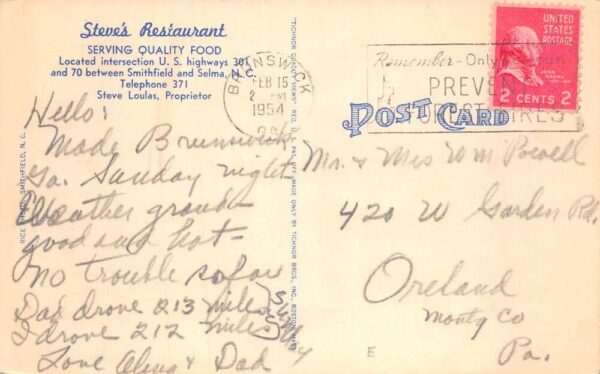 Steve's Restaurant
SERVING QUALITY FOOD
Located intersection U. S. highways 301
and 70 between Smithfield and Selma, N. C.
Telephone 371
Steve Loulas, Proprietor
BRUNSWICK
FEB 15
2 PM
1954
GA.
Remember-Only
PREVENT
FOREST FIRES
UNITED
STATES
POSTAGE
JOHN
ADAMS
2 CENTS 2
POST CARD
Hello:
Made Brunswick
Ga. Sunday night
Weather grand -
good and hot -
No trouble so far
Dad drove 213 miles
I drove 212 miles
Love & Dad
Mr. & Mrs Wm Powell
420 W Garden Rd.
Oreland
Montg Co
Pa.
RICE SMITHFIELD, N. C.
"TICHNOR QUALITY VIEWS" REG. U. S. PAT. OFF. MADE ONLY BY TICHNOR BROS., INC., BOSTON, MASS.
E